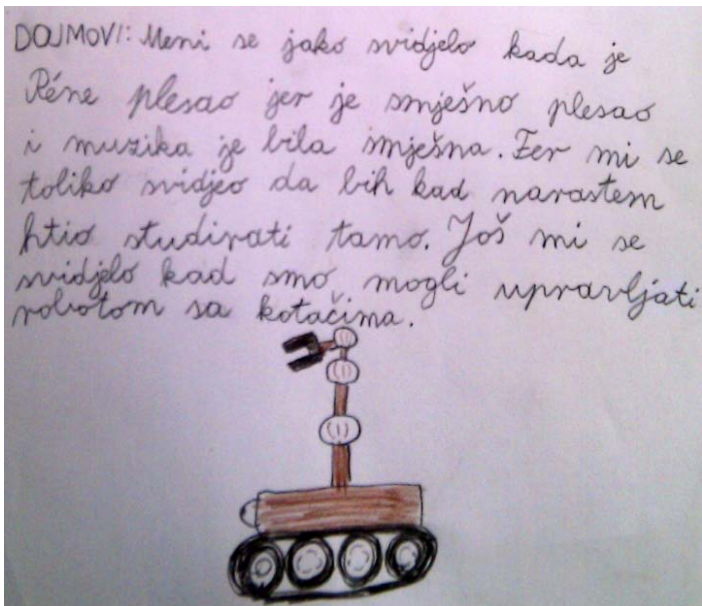 DOJMOVI: Meni se jako svidjelo kada je
Réne plesao jer je smješno plesao
i muzika je bila smješna. Fer mi se
toliko svidjeo da bih kad narastem
htio studirati tamo. Još mi se
svidjelo kad smo mogli upravljati
robotom sa kotačima.